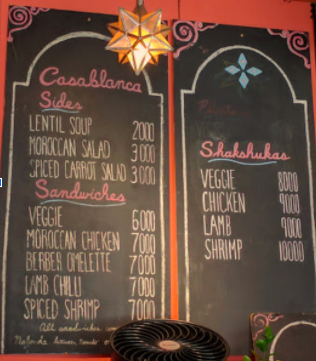 Casablanca
Sides
LENTIL SOUP 2000
MOROCCAN SALAD 3000
SPICED CARROT SALAD 3000
Sandwiches
VEGGIE 6000
MOROCCAN CHICKEN 7000
BERBER OMELETTE 7000
LAMB CHILLI 7000
SPICED SHRIMP 7000
All sandwiches
Shakshukas
VEGGIE 8000
CHICKEN 9000
LAMB 9000
SHRIMP 10000